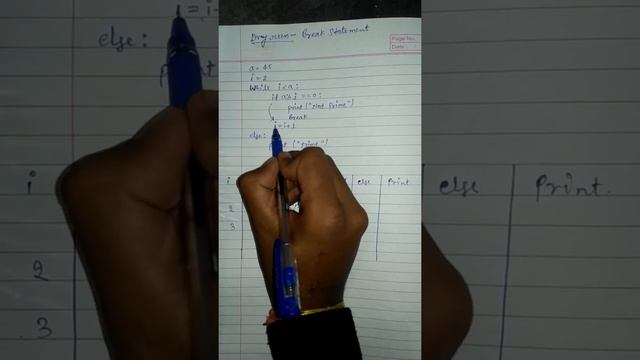 Program - Break Statement
Page No.
Date
a = 45
i = 2
While i<a:
if a%i == 0:
print ("Not Prime")
break
i=i+1
else:
("Prime")
i else print
2
3